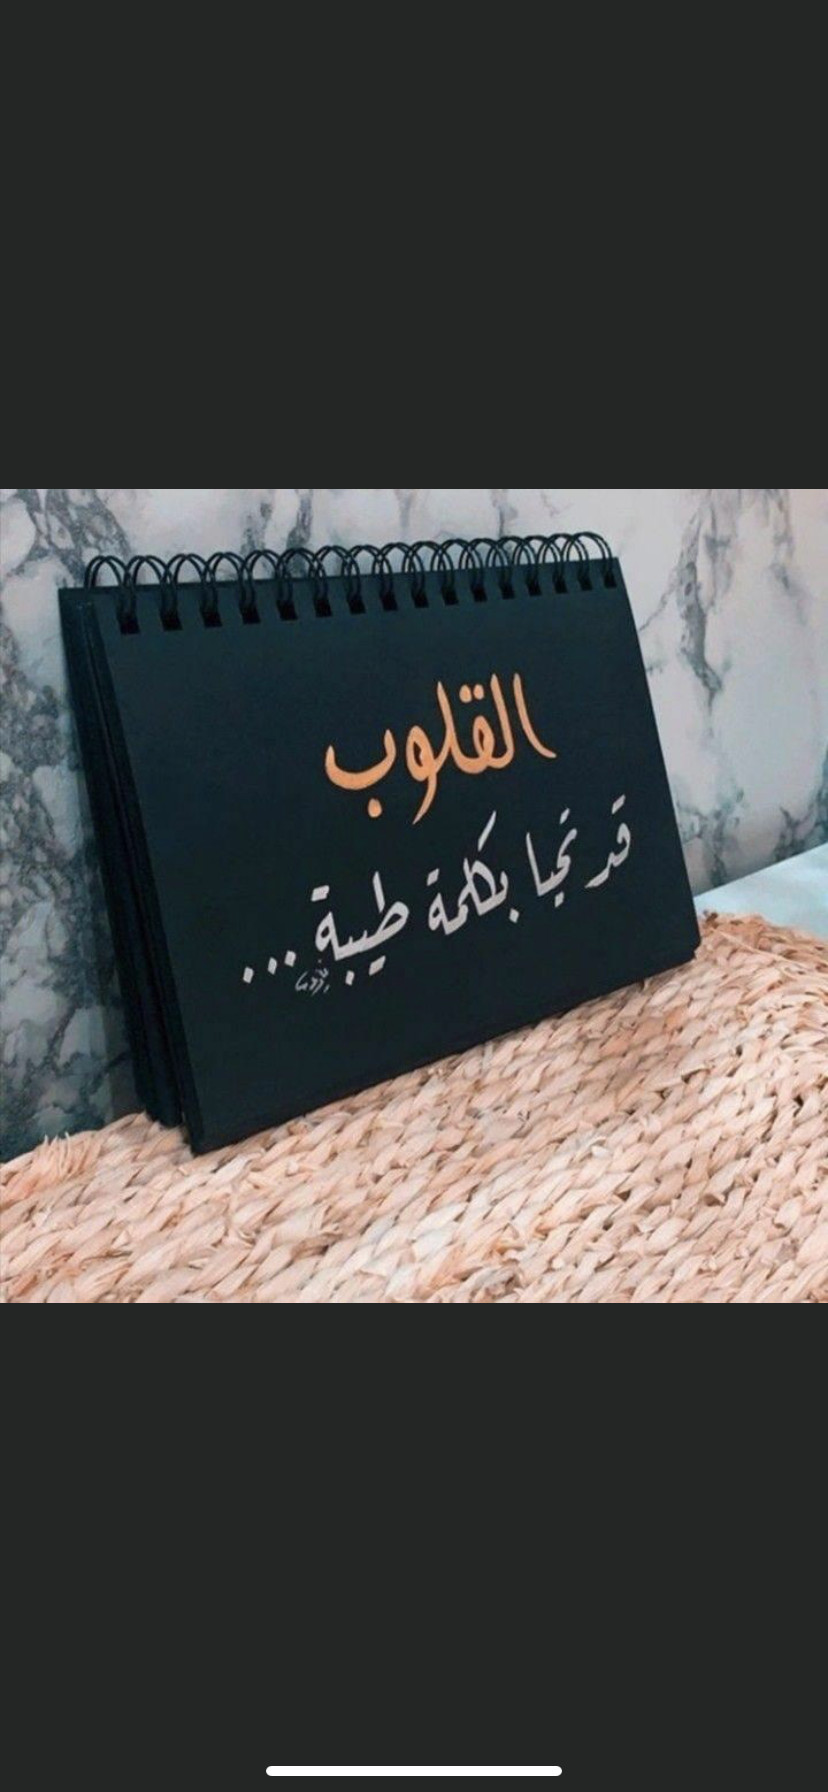 القلوب
قد تحيا بكلمة طيبة ...